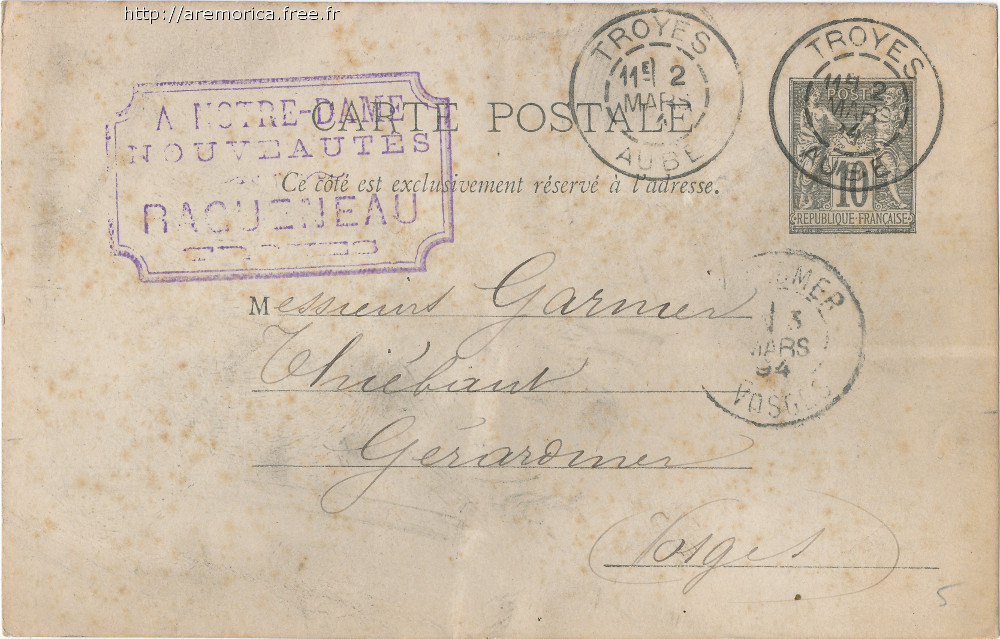 http://aremorica.free.fr
A NOTRE-DAME
NOUVEAUTÉS
RAGUENEAU
TROYES
CARTE POSTALE
Ce côté est exclusivement réservé à l'adresse.
TROYES
11E 2
MARS
AUBE
TROYES
11E 2
MARS
AUBE
POSTES
10
REPUBLIQUE-FRANÇAISE
Messieurs Garnier
Thiébaut
Gérardmer
Vosges
MER
3
MARS
94
VOSGES
5